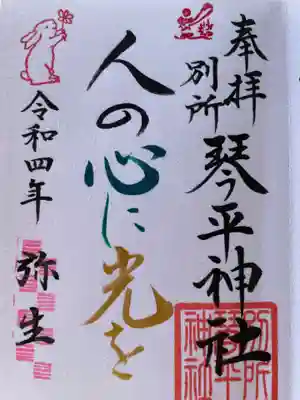 奉拝
別所
琴平神社
人の心に光を
令和四年
弥生
別所
琴平
神社